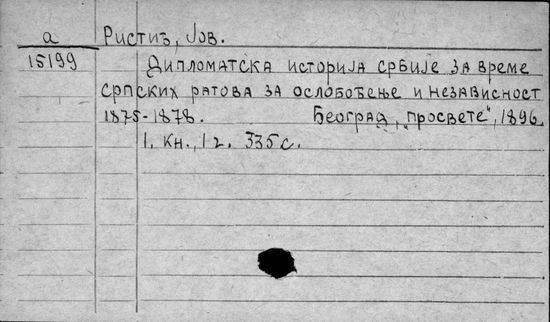 а Ристић, Јов.
15199 Дипломатска историја србије за време
српских ратова за ослобођење и независност
1875-1878. Београд, „просвете", 1896.
1. Кн., 1 г. 335 с.